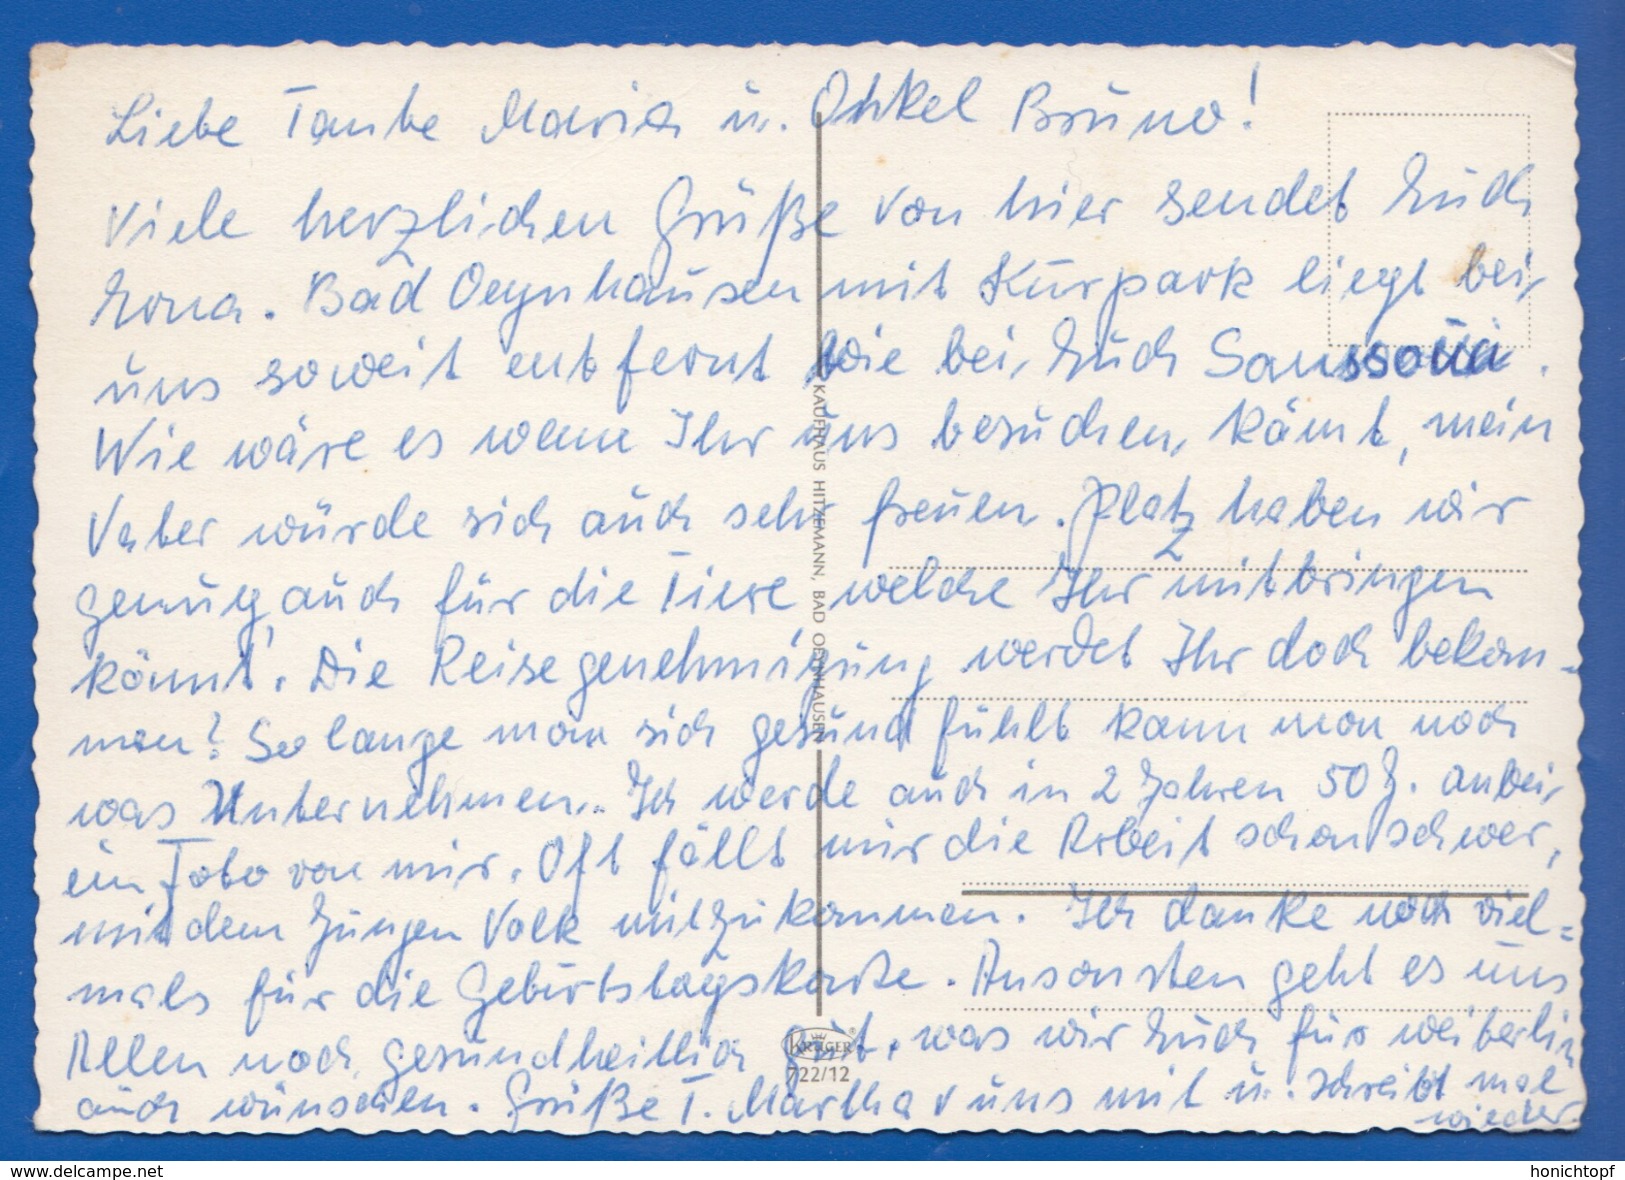 Liebe Tante Maria u. Onkel Bruno!
Viele herzlichen Grüße von hier sendet Euch
Erna. Bad Oeynhausen mit Kurpark liegt bei
uns soweit entfernt wie bei Euch Sanssoui.
Wie wäre es wenn Ihr uns besuchen, kämt, mein
Vater würde sich auch sehr freuen. Platz haben wir
genug, auch für die Tiere welche Ihr mitbringen
könnt. Die Reisegenehmigung werdet Ihr doch bekom-
men? So lange man sich gesund fühlt kann man noch
was Unternehmen. Ich werde auch in 2 Jahren 50 J. anbei,
ein Foto von mir. Oft fällt mir die Arbeit schon schwer,
mit dem Jungen Volk mitzukommen. Ich danke noch viel=
mals für die Geburtstagskarte. Ansonsten geht es uns
Allen noch gesundheitlich gut, was wir Euch für weiterhin
auch wünschen. Grüße T. Martha v uns mit u. schreibt mal
wieder.
KAUFHAUS HITZEMANN, BAD OEYNHAUSEN
KRÜGER®
722/12
www.delcampe.net
honichtopf